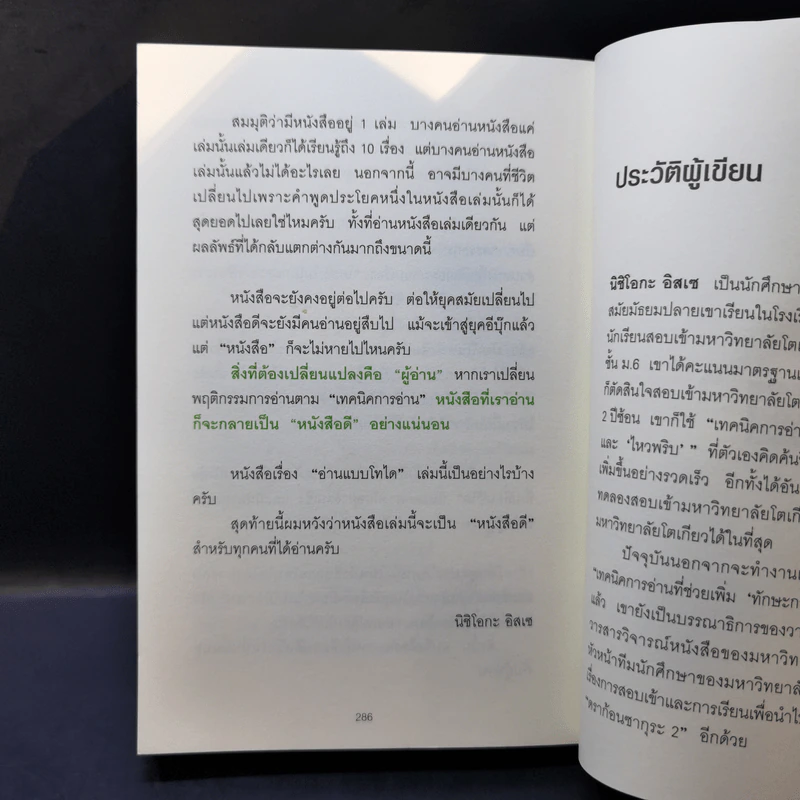 สมมุติว่ามีหนังสืออยู่ 1 เล่ม บางคนอ่านหนังสือแค่
เล่มนั้นเล่มเดียวก็ได้เรียนรู้ถึง 10 เรื่อง แต่บางคนอ่านหนังสือ
เล่มนั้นแล้วไม่ได้อะไรเลย นอกจากนี้ อาจมีบางคนที่ชีวิต
เปลี่ยนไปเพราะคำพูดประโยคหนึ่งในหนังสือเล่มนั้นก็ได้
สุดยอดไปเลยใช่ไหมครับ ทั้งที่อ่านหนังสือเล่มเดียวกัน แต่
ผลลัพธ์ที่ได้กลับแตกต่างกันมากถึงขนาดนี้
หนังสือจะยังคงอยู่ต่อไปครับ ต่อให้ยุคสมัยเปลี่ยนไป
แต่หนังสือดีจะยังมีคนอ่านอยู่สืบไป แม้จะเข้าสู่ยุคอีบุ๊กแล้ว
แต่ “หนังสือ” ก็จะไม่หายไปไหนครับ
สิ่งที่ต้องเปลี่ยนแปลงคือ “ผู้อ่าน” หากเราเปลี่ยน
พฤติกรรมการอ่านตาม “เทคนิคการอ่าน” หนังสือที่เราอ่าน
ก็จะกลายเป็น “หนังสือดี” อย่างแน่นอน
หนังสือเรื่อง “อ่านแบบโทได” เล่มนี้เป็นอย่างไรบ้าง
ครับ
สุดท้ายนี้ผมหวังว่าหนังสือเล่มนี้จะเป็น “หนังสือดี”
สำหรับทุกคนที่ได้อ่านครับ
นิชิโอกะ อิสเซ
286
ประวัติผู้เขียน
นิชิโอกะ อิสเซ เป็นนักศึกษา
สมัยมัธยมปลายเขาเรียนในโรงเรี
นักเรียนสอบเข้ามหาวิทยาลัยโตเ
ชั้น ม.6 เขาได้คะแนนมาตรฐานเ
ก็ตัดสินใจสอบเข้ามหาวิทยาลัยโต
2 ปีซ้อน เขาก็ใช้ “เทคนิคการอ่า
และ ‘ไหวพริบ’ ” ที่ตัวเองคิดค้นขึ
เพิ่มขึ้นอย่างรวดเร็ว อีกทั้งได้อัน
ทดลองสอบเข้ามหาวิทยาลัยโตเกี
มหาวิทยาลัยโตเกียวได้ในที่สุด
ปัจจุบันนอกจากจะทำงานเ
“เทคนิคการอ่านที่ช่วยเพิ่ม ‘ทักษะก
แล้ว เขายังเป็นบรรณาธิการของวา
วารสารวิจารณ์หนังสือของมหาวิท
หัวหน้าทีมนักศึกษาของมหาวิทยาลั
เรื่องการสอบเข้าและการเรียนเพื่อนำไ
“ดราก้อนซากุระ 2” อีกด้วย